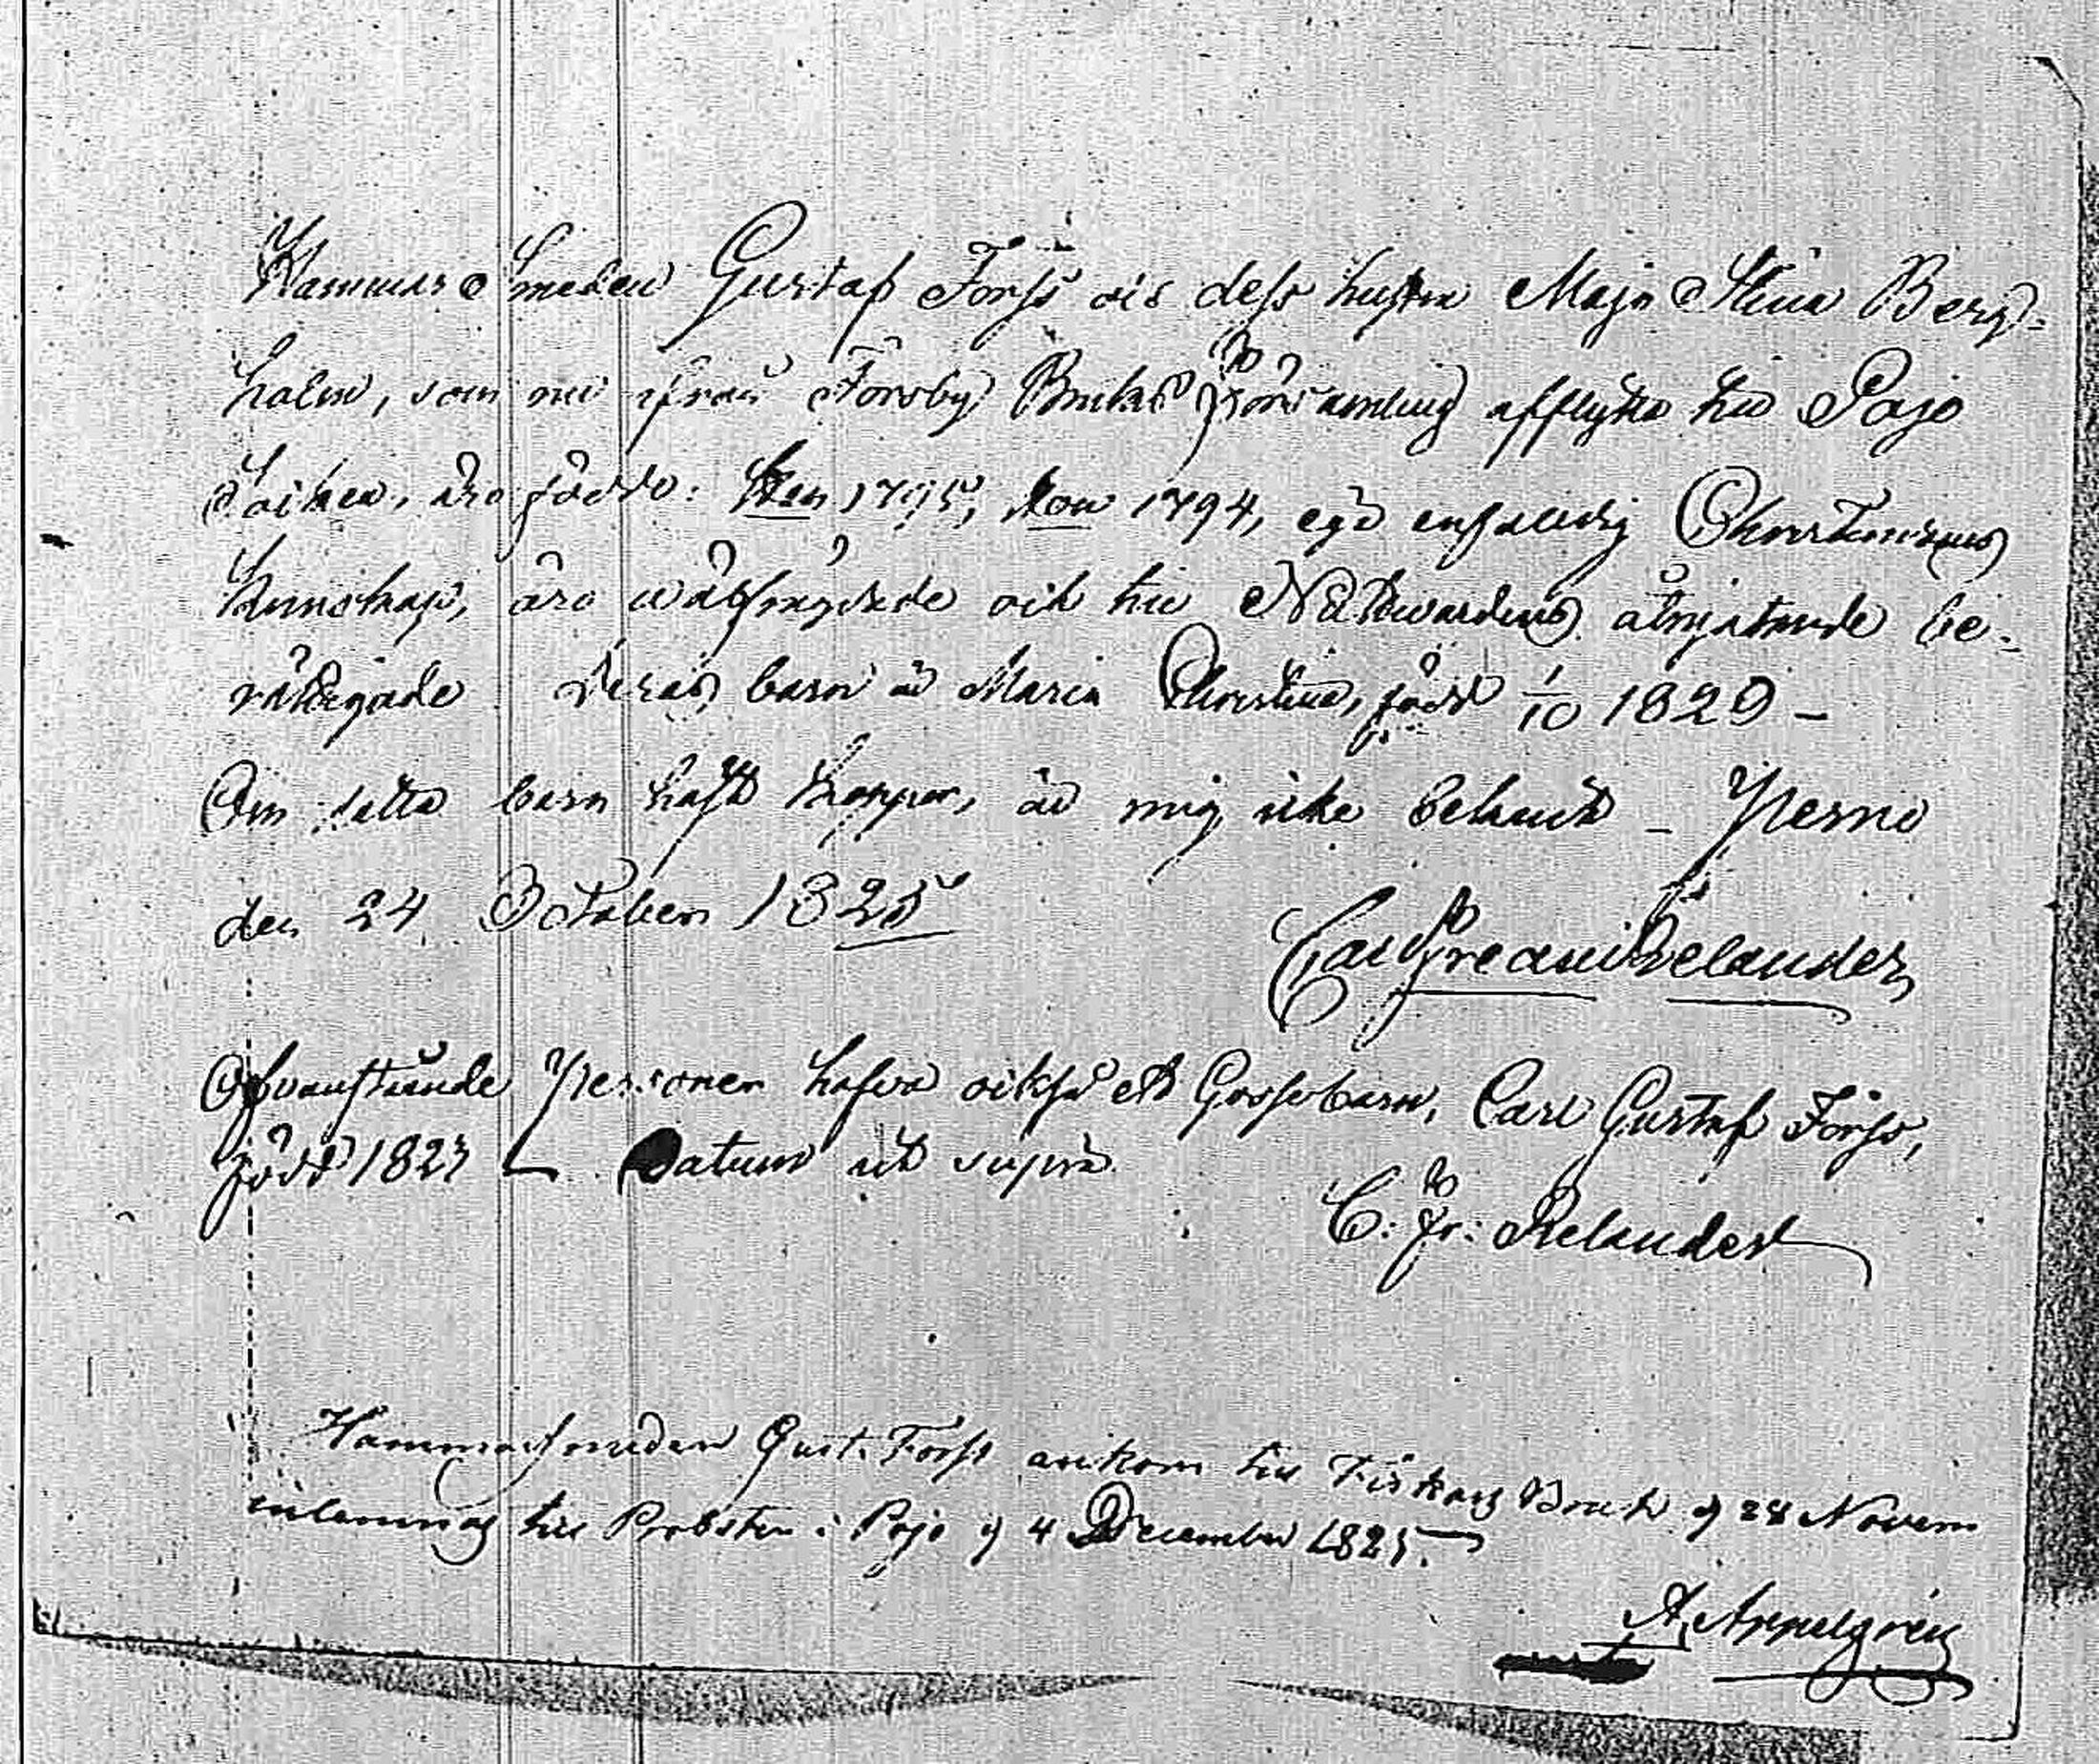 Hammar Smeden Gustaf Forss och dess hustru Maja Stina Berg-
holm, som nu ifrån Forsby Bruks Församling afflytta till Pojo
Socken, äro födde: Han 1795, hon 1794, ega enfaldig Christendoms
kunskap, äro wälfrägdade och till Nattwardens åtnjutande be-
rättigade. Deras barn är Maria Christina, född 1/10 1820 –
Om detta barn haft koppor, är mig icke bekant – Perno
den 24 October 1825
Carl Fredric Relander
Ofvanstående Personer hafva också ett Gossebarn, Carl Gustaf Forss,
född 1823 – Datum ut supra
C: Fr: Relander
Hammarsmeden Gust. Forss ankom till Fiskars Bruk d 28 Novem
till Probsten i Pojo d 4 December 1825.
A. Appelgren